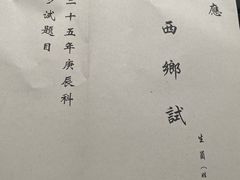 應
生員(姓
西鄉試
二十五年庚辰科
試題目